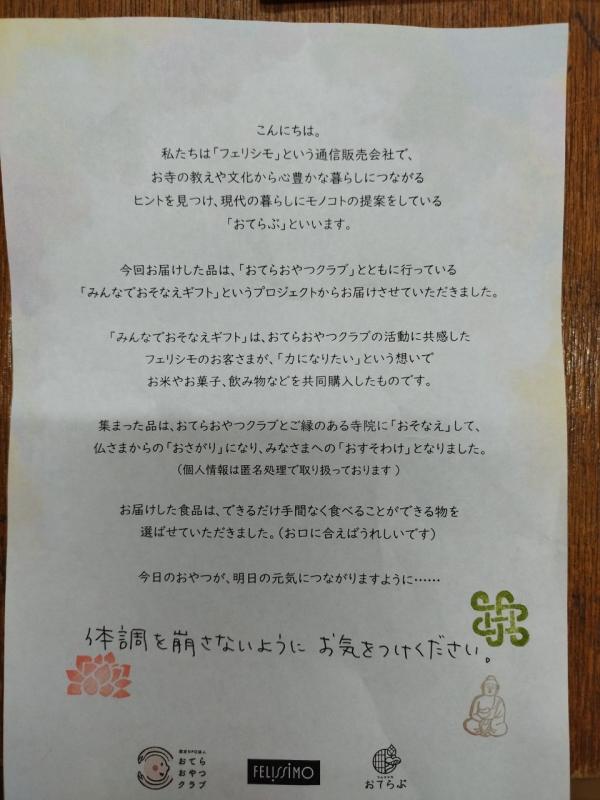 こんにちは。
私たちは「フェリシモ」という通信販売会社で、
お寺の教えや文化から心豊かな暮らしにつながる
ヒントを見つけ、現代の暮らしにモノコトの提案をしている
「おてらぶ」といいます。
今回お届けした品は、「おてらおやつクラブ」とともに行っている
「みんなでおそなえギフト」というプロジェクトからお届けさせていただきました。
「みんなでおそなえギフト」は、おてらおやつクラブの活動に共感した
フェリシモのお客さまが、「力になりたい」という想いで
お米やお菓子、飲み物などを共同購入したものです。
集まった品は、おてらおやつクラブとご縁のある寺院に「おそなえ」して、
仏さまからの「おさがり」になり、みなさまへの「おすそわけ」となりました。
(個人情報は匿名処理で取り扱っております)
お届けした食品は、できるだけ手間なく食べることができる物を
選ばせていただきました。(お口に合えばうれしいです)
今日のおやつが、明日の元気につながりますように……
体調を崩さないように お気をつけください。
認定NPO法人
おてら
おやつ
クラブ
FELISSIMO
おてらぶ